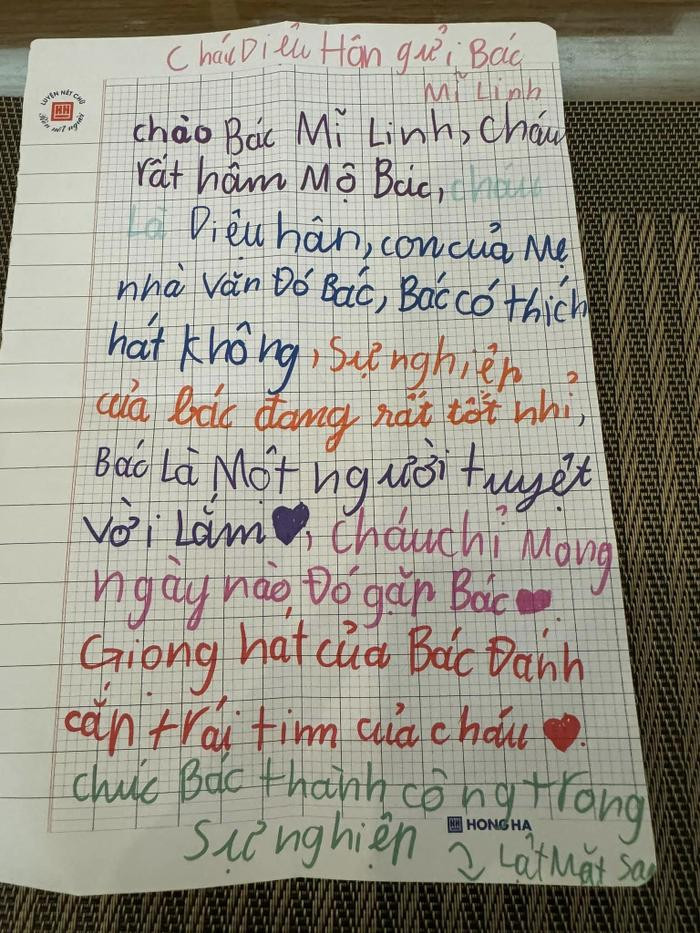 Cháu Diệu Hân gửi Bác
Mĩ Linh
LUYỆN NÉT CHỮ
HH
Rèn nết người
chào Bác Mĩ Linh, cháu
rất hâm Mộ Bác, cháu
Là Diệu hân, con của Mẹ
nhà Văn Đó Bác, Bác có thích
hát không, Sự nghiệp
của bác đang rất tốt nhỉ,
Bác Là Một người tuyệt
vời Lắm, cháu chỉ Mong
ngày nào Đó gặp Bác.
Giọng hát của Bác Đánh
cắp trái tinm của cháu.
chúc Bác thành công trong
Sự nghiệp
HONG HA
Lật Mặt Sa